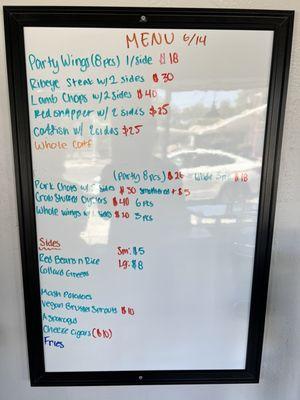 MENU 6/14
Party Wings (8 pcs) 1/side $18
Ribeye Steak w/ 2 sides $30
Lamb Chops w/ 2 sides $40
Red snapper w/ 2 sides $25
catfish w/ 2 sides $25
Whole Catf
(Party 8 pcs) $26 Whole $18
Pork Chops w/ sides $30 Smothered + $5
Crab Stuffed Oysters $40 6 pcs
Whole wings w/ sides $20 3 pcs
Sides
Red Beans n Rice Sm: $5
Collard Greens Lg: $8
Mash Potatoes
Vegan Brussler Sprouts $10
Asparagus
Cheese Cigars ($10)
Fries